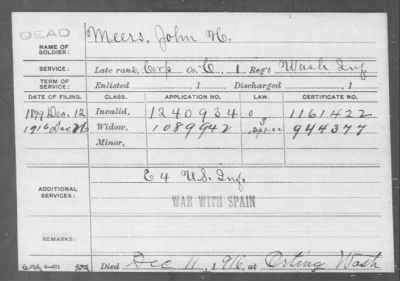 DEAD
NAME OF SOLDIER: Meers, John H.
SERVICE: Late rank, Corp Co. C, 1 Reg't Wash Inf
TERM OF SERVICE: Enlisted , 1 Discharged , 1
DATE OF FILING. CLASS. APPLICATION NO. LAW. CERTIFICATE NO.
1899 Dec. 12 Invalid, 1240934 1161422
1916 Dec 26 Widow, 1089942 944377
Minor,
ADDITIONAL SERVICES: E 4 U.S. Inf.
WAR WITH SPAIN
REMARKS:
Died Dec 11, 1916, at Orting Wash